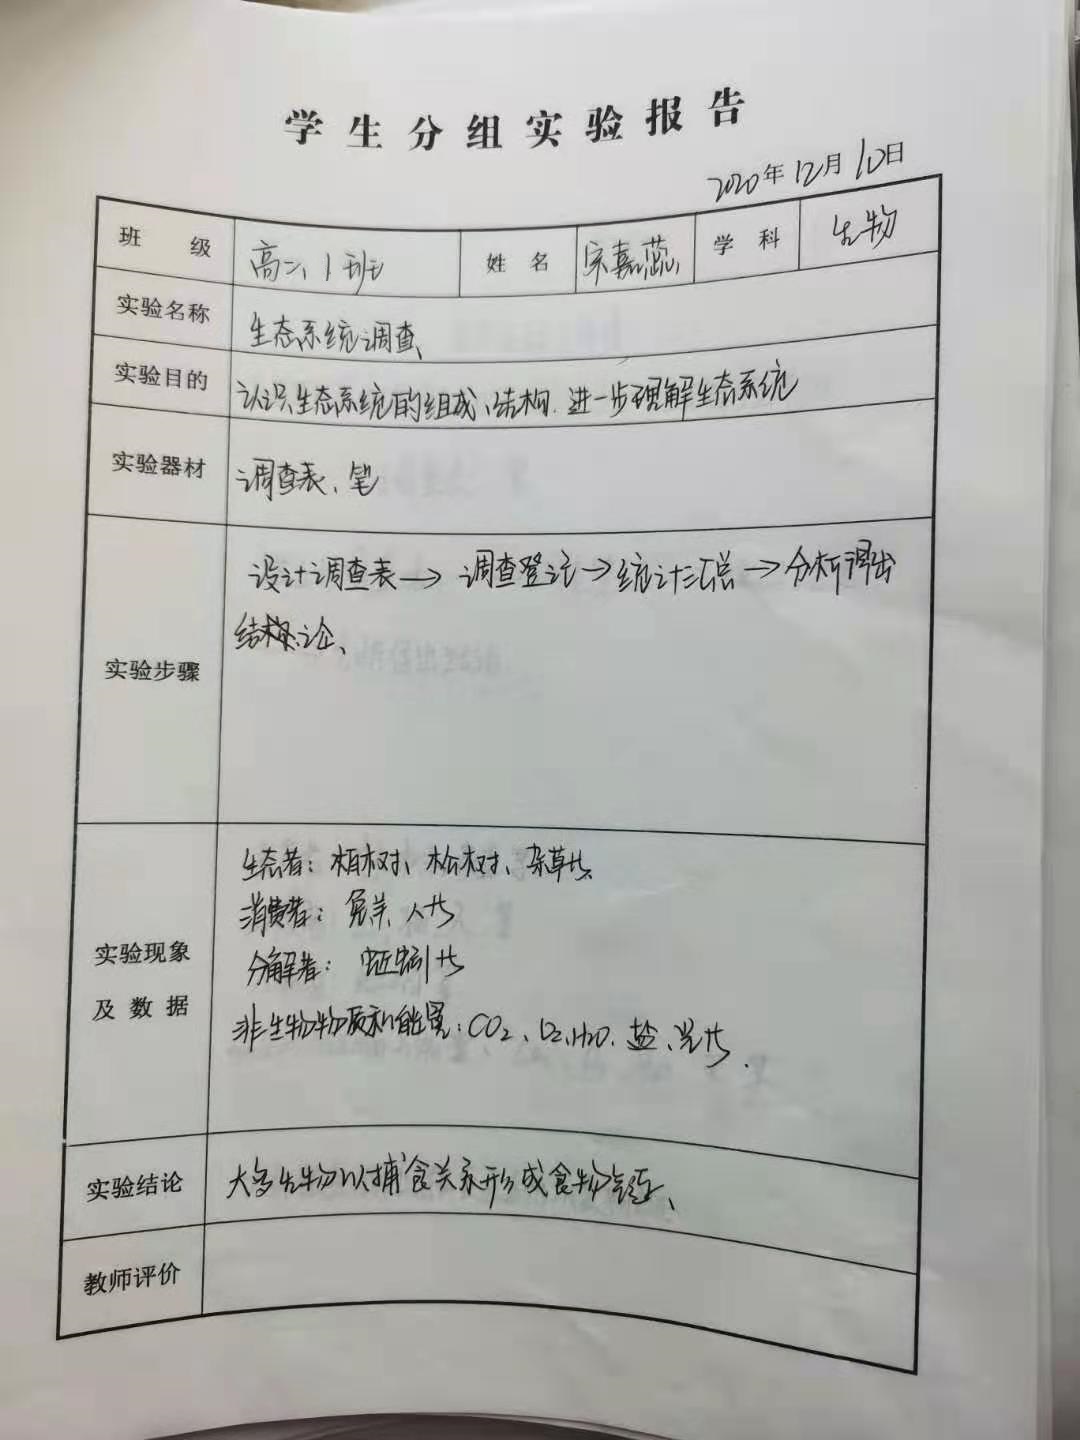 学生分组实验报告
2020年12月10日
班级 高二、1班 姓名 宋嘉蕊 学科 生物
实验名称 生态系统调查
实验目的 认识生态系统的组成、结构.进一步理解生态系统
实验器材 调查表、笔
设计调查表→调查登记→统计汇总→分析得出
结论、
实验步骤
生态者:柏树、松树、杂草等
消费者:兔羊、人等
分解者:蚯蚓等
实验现象
及数据
非生物物质和能量:CO2、O2、H2O.盐、光等.
实验结论 大多生物以捕食关系形成食物链、
教师评价